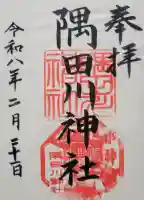 奉拝
隅田川神社
令和八年二月二十日